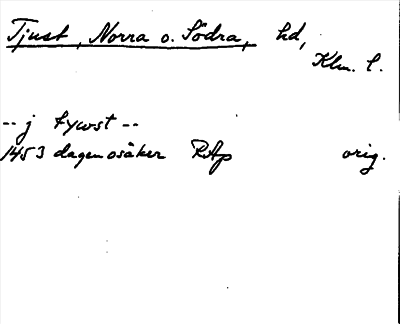 Tjust, Norra o. Södra, hd,
Klm. l.
-- j tywst --
1453 dagen osäker RAp orig.